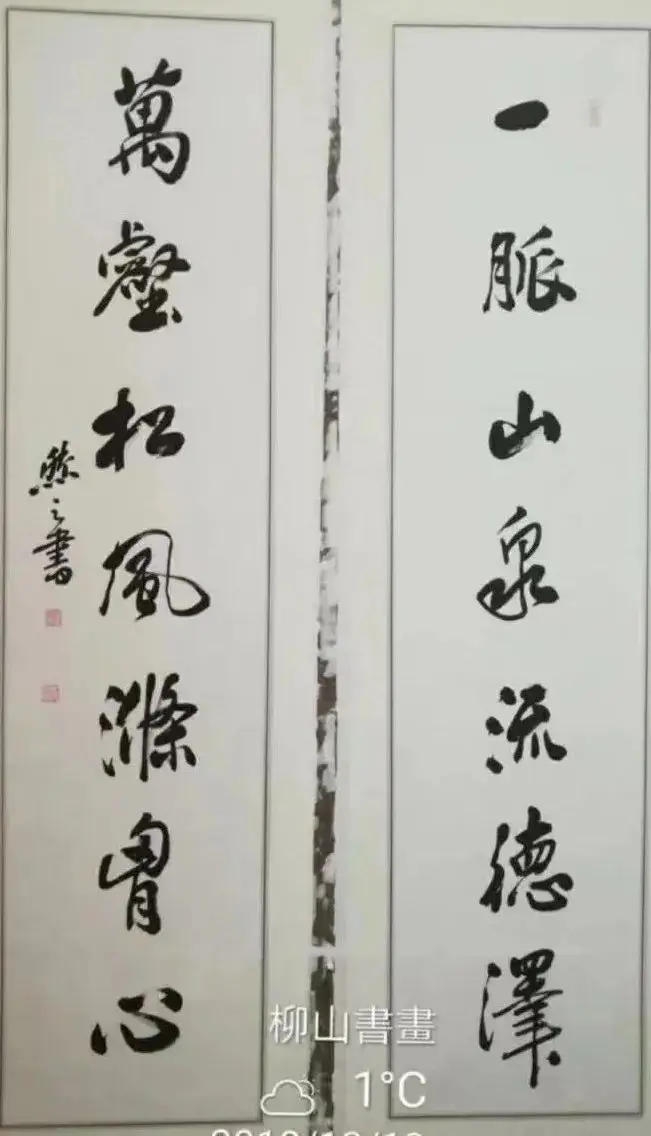 一脈山泉流德澤
萬壑松風滌胷心
之書
柳山書畫
1°C